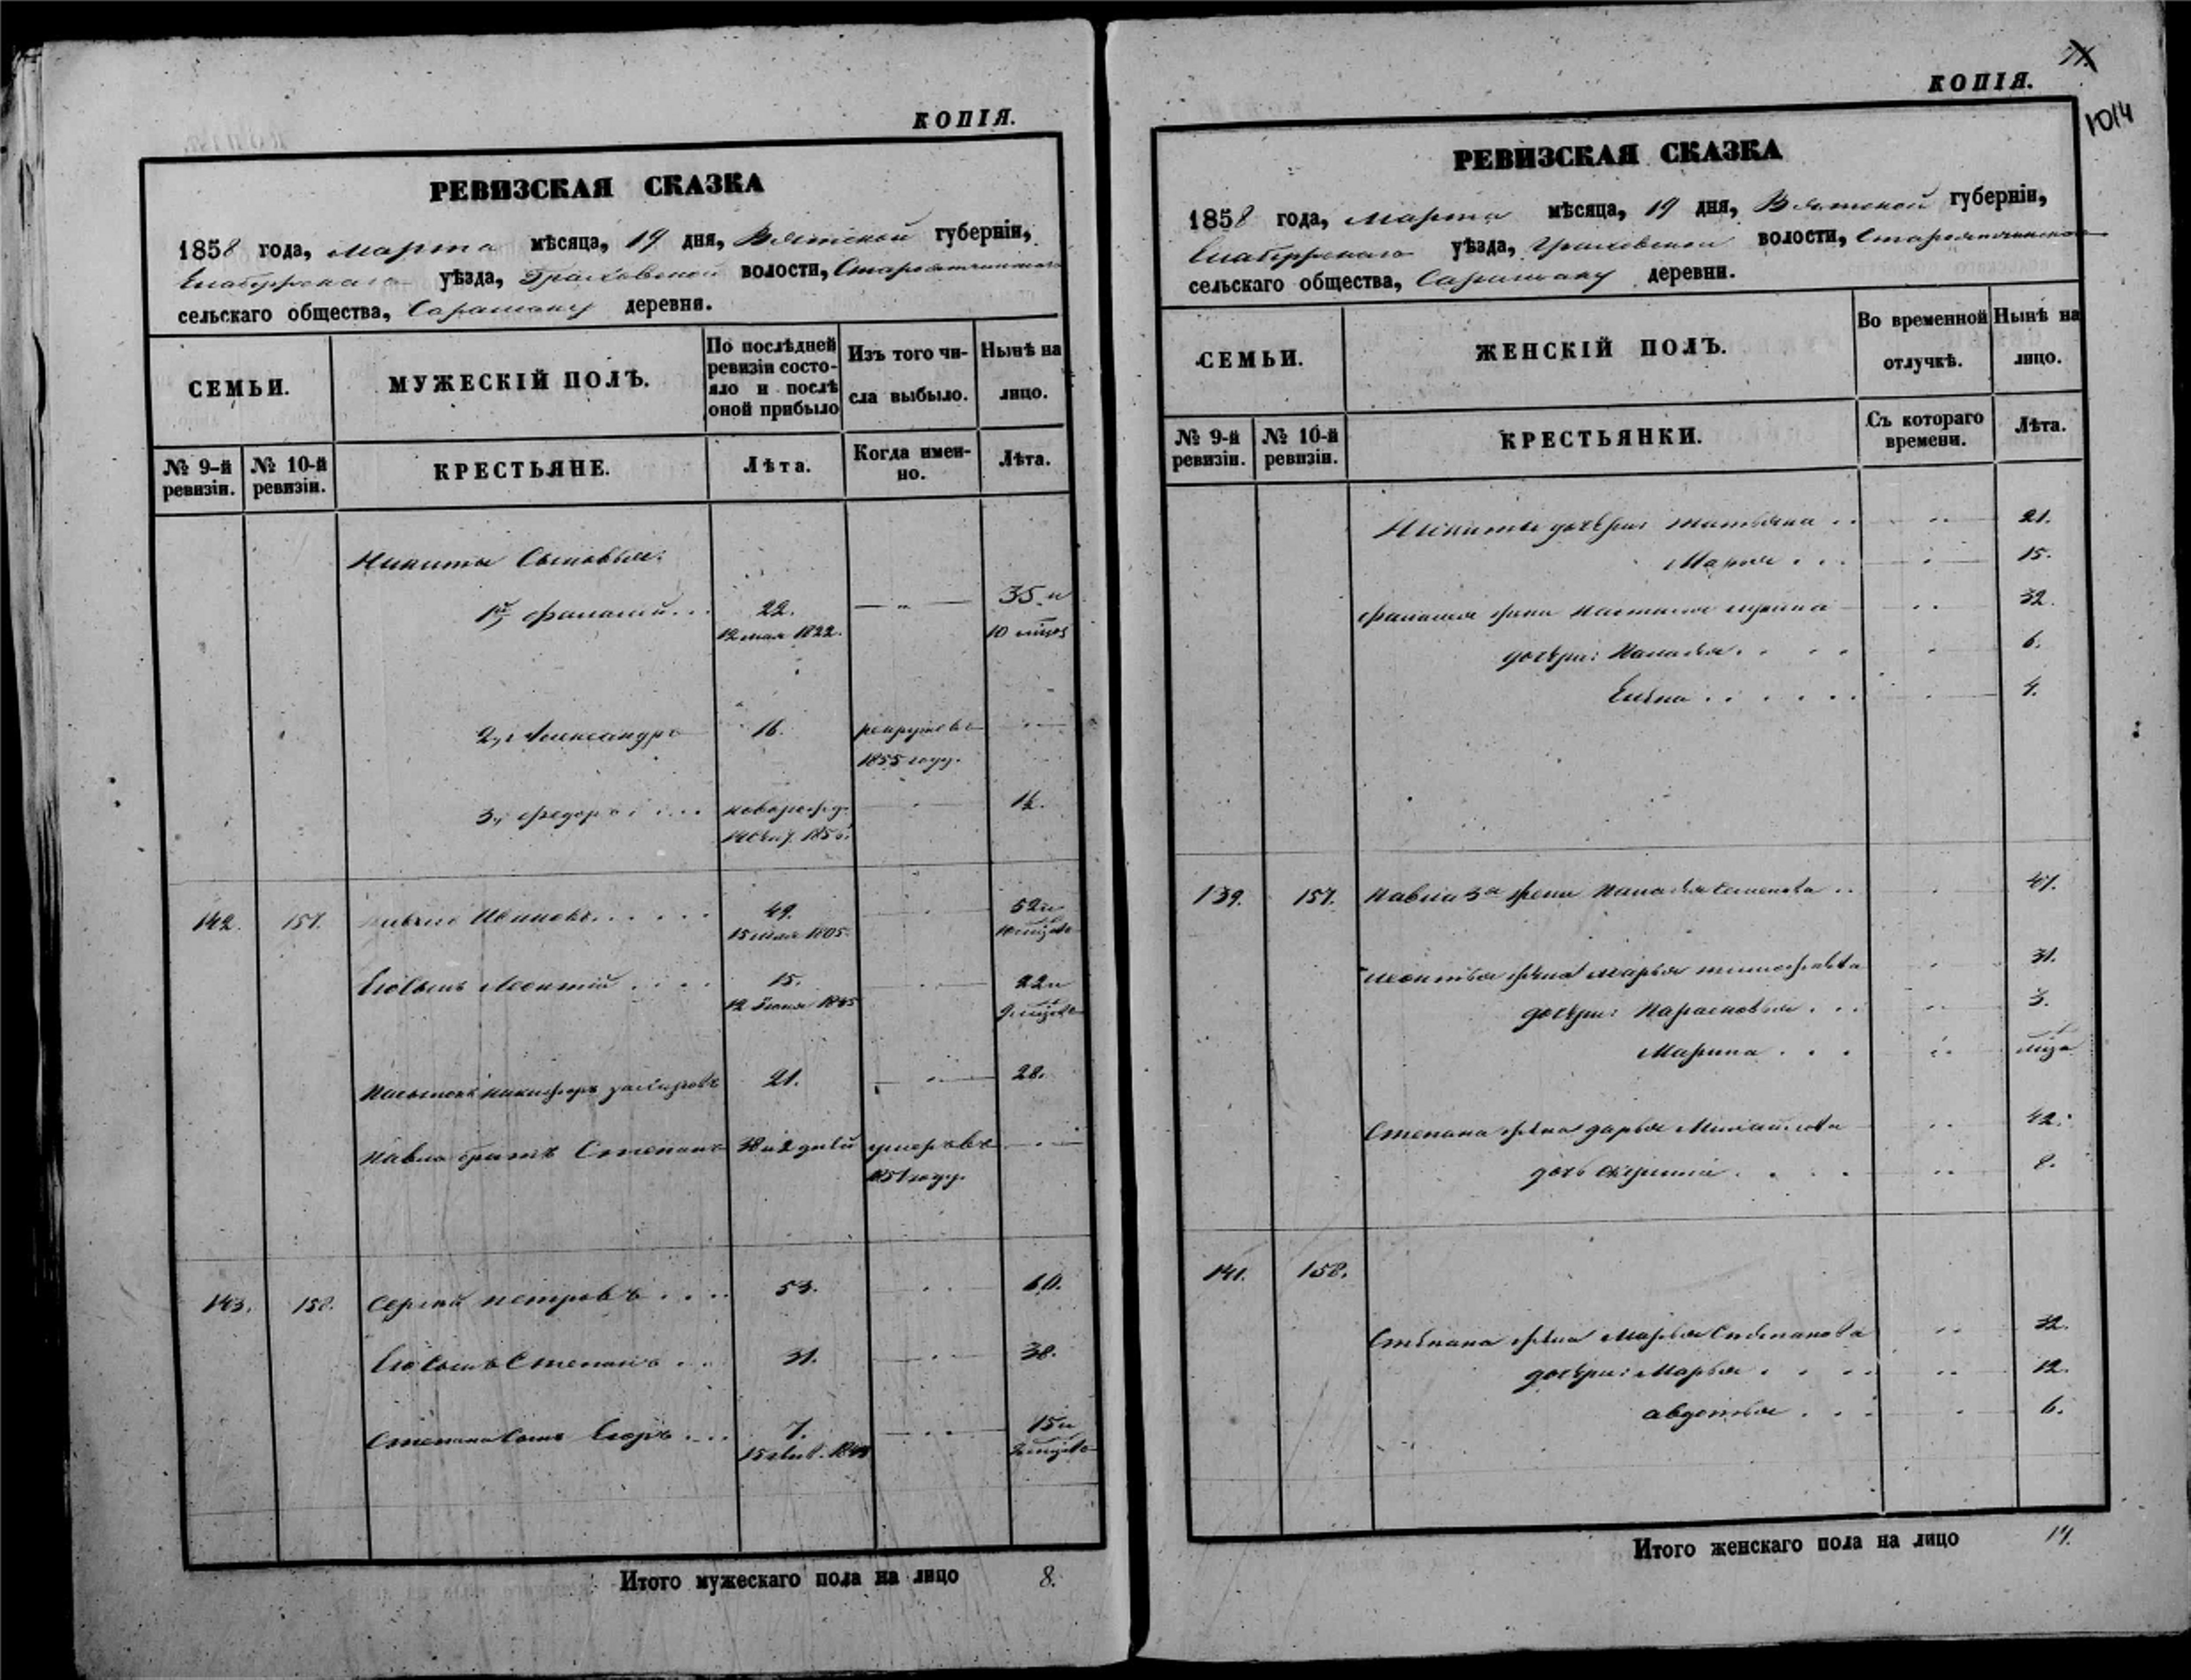 КОПІЯ.
РЕВИЗСКАЯ СКАЗКА
1858 года, марта мѣсяца, 19 дня, Вятской губерніи,
Елабужскаго уѣзда, Граховской волости,
сельскаго общества, Сарашаку деревни.
СЕМЬИ.
МУЖЕСКІЙ ПОЛЪ.
По послѣдней ревизіи состояло и послѣ оной прибыло
Изъ того числа выбыло.
Нынѣ на лицо.
№ 9-й ревизіи.
№ 10-й ревизіи.
КРЕСТЬЯНЕ.
Лѣта.
Когда именно.
Лѣта.
Никиты Сыновья:
1й 22. — " — 35 и
12 мая 1822. 10
2й Александръ 16. рекрутовъ
1855 году.
3й Федоръ новорожд. 1½.
1856.
142. 157. Ивановъ 49. 52 и
15 мая 1805.
Его сынъ Леонтій 15. 22 и
12 Іюня 1835 9
Пасынокъ Никифоръ 21. 28.
Павла братъ Степанъ умеръ въ
1851 году.
143. 158. Сергей Петровъ 53. 60.
Его сынъ Степанъ 31. 38.
Степана сынъ Егоръ 7. 15 и
Итого мужескаго пола на лицо 8.
КОПІЯ.
1014
РЕВИЗСКАЯ СКАЗКА
1858 года, марта мѣсяца, 19 дня, Вятской губерніи,
Елабужскаго уѣзда, Граховской волости,
сельскаго общества, Сарашаку деревни.
СЕМЬИ.
ЖЕНСКІЙ ПОЛЪ.
Во временной отлучкѣ.
Нынѣ на лицо.
№ 9-й ревизіи.
№ 10-й ревизіи.
КРЕСТЬЯНКИ.
Съ котораго времени.
Лѣта.
Никиты дочери: Татьяна 21.
Марья 15.
жена Настасья 32.
дочери: Наталья 6.
Елена 4.
139. 157. Павла 3я жена Наталья Семенова 47.
Леонтья жена Марья Тимофѣева 31.
дочери: Парасковья 3.
Марина
Степана жена Дарья Михайлова 42.
дочь 8.
141. 158.
Степана жена Марья Степанова 32.
дочери: Марья 12.
Авдотья 6.
Итого женскаго пола на лицо 14.